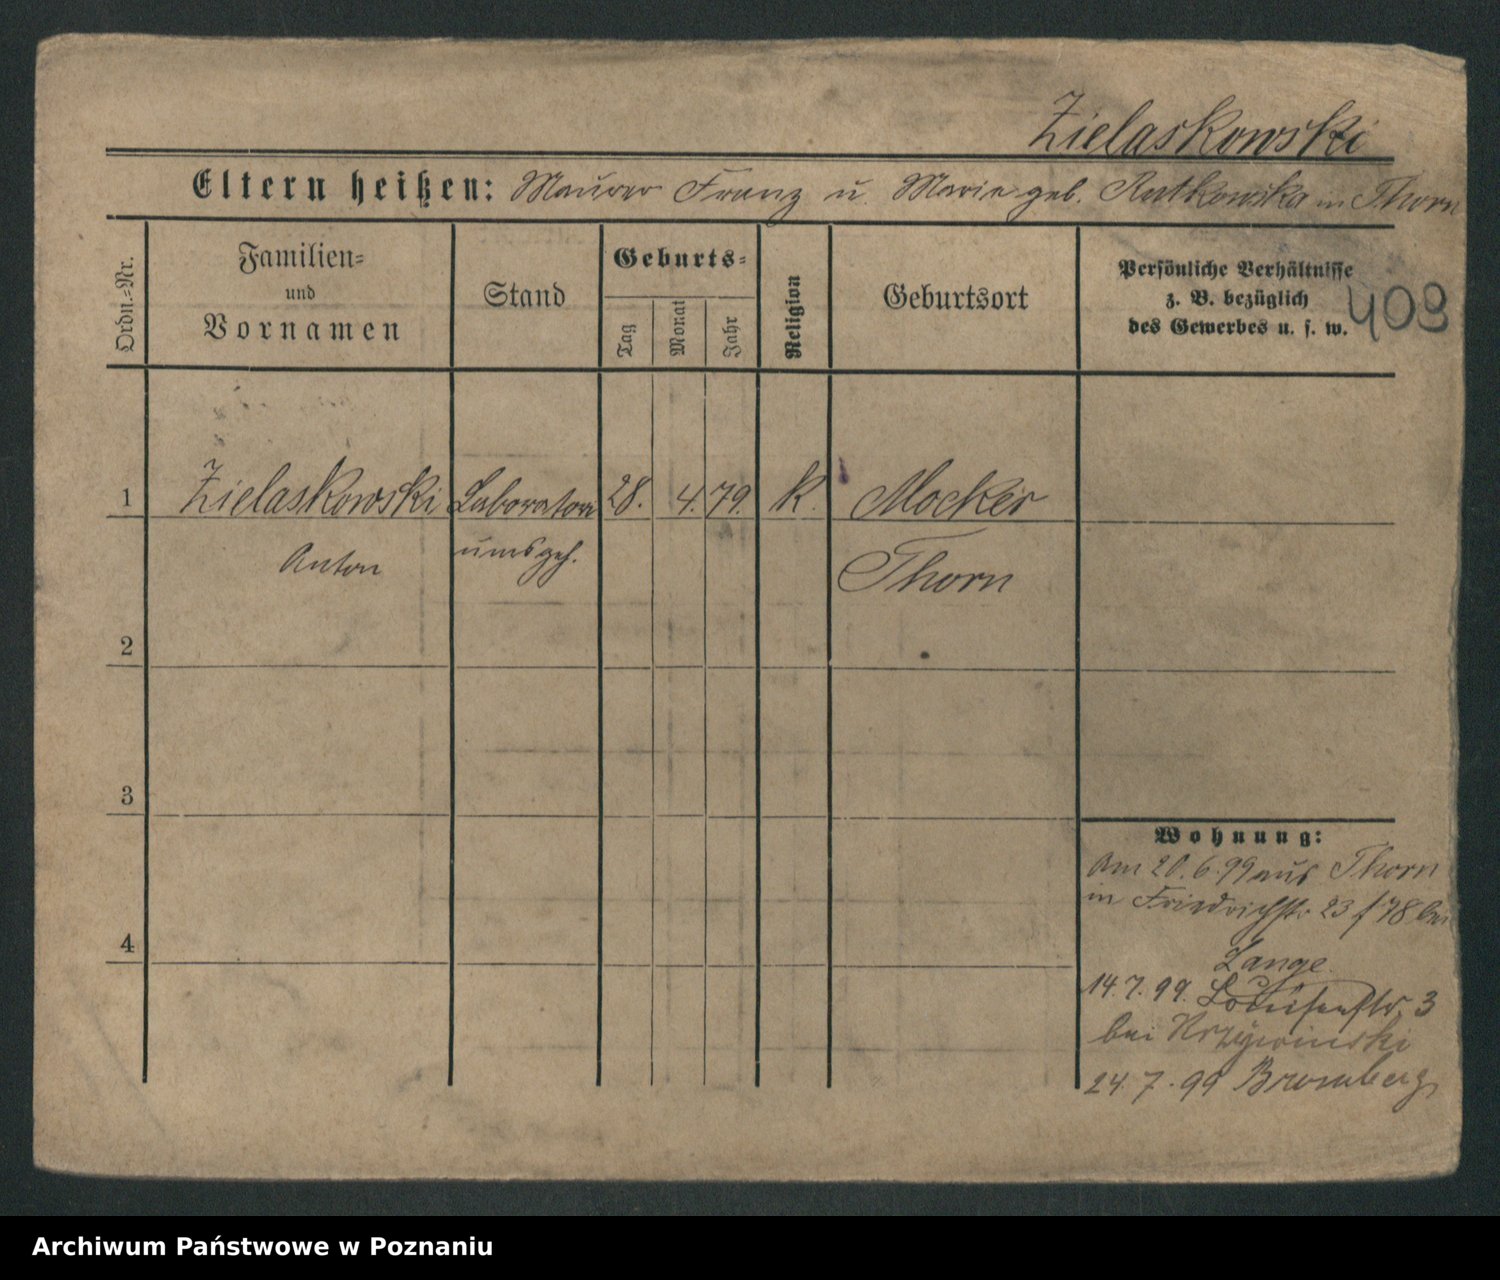 Zielaskowski
Eltern heißen: Maurer Franz u. Marie geb. Rutkowska in Thorn
Ordn.=Nr.
Familien=
und
Vornamen
Stand
Geburts=
Tag
Monat
Jahr
Religion
Geburtsort
Persönliche Verhältnisse
z. B. bezüglich
des Gewerbes u. s. w.
409
1 Zielaskowski Laboratori 28. 4. 79. K. Mocker
Anton umsgeh. Thorn
2
3
4
Wohnung:
Am 20.6.99 aus Thorn
in Friedrichstr 23 bei
Lange
14.7.99. Louisenstr. 3
bei Krzywinski
24.7.99 Bromberg
Archiwum Państwowe w Poznaniu